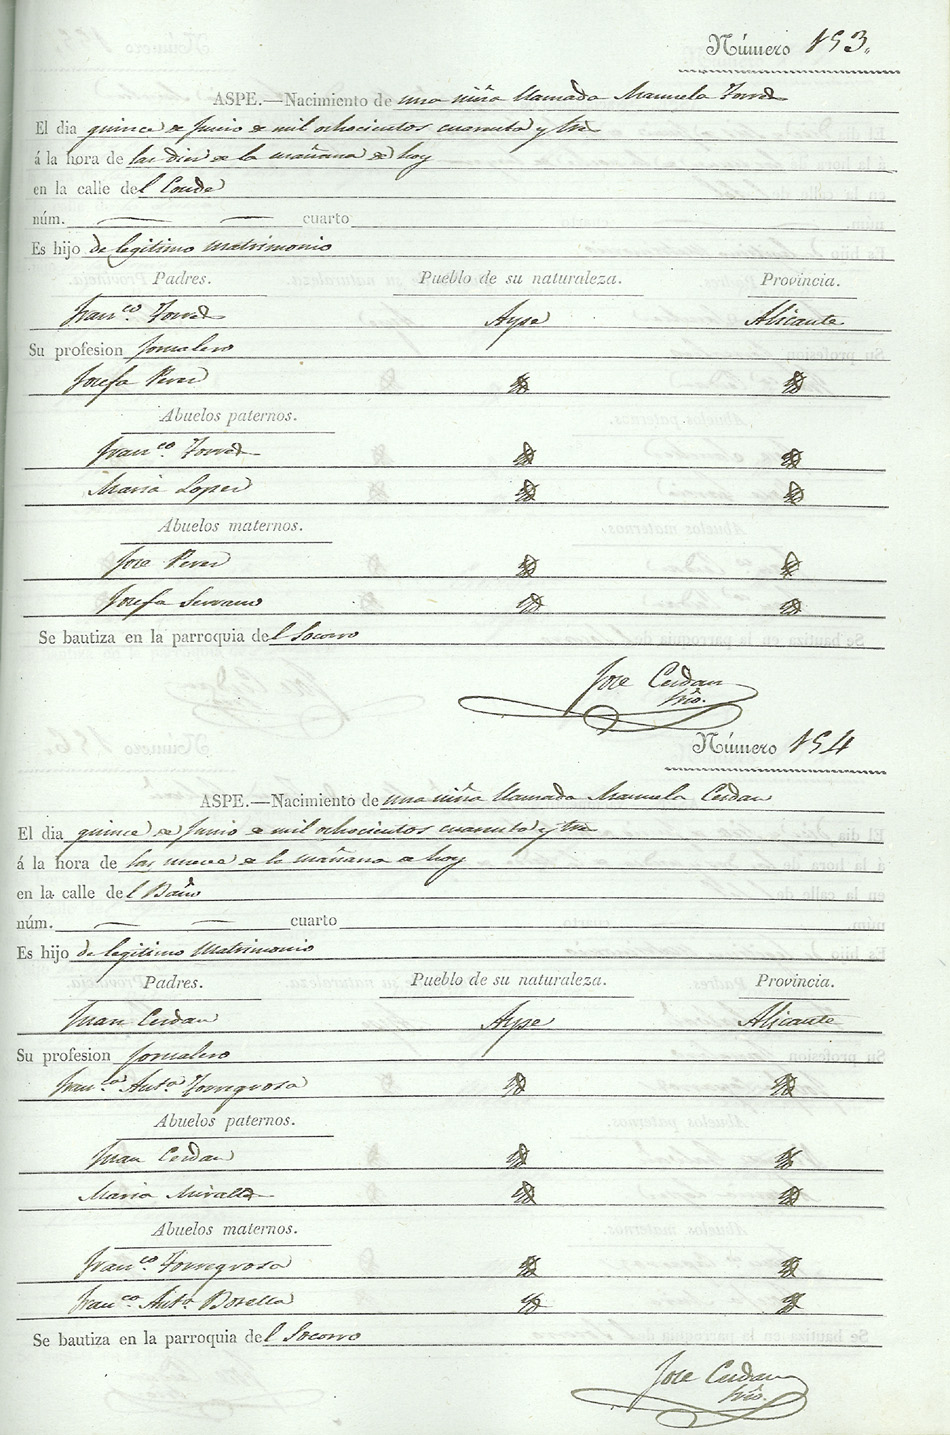 Número 153.
ASPE.—Nacimiento de una niña llamada Manuela Torres
El dia quince de Junio de mil ochocientos cuarenta y tres
á la hora de las diez de la mañana de hoy
en la calle del Conde
núm. — — cuarto
Es hijo de legitimo matrimonio
Padres. Pueblo de su naturaleza. Provincia.
Franco. Torres Aspe Alicante
Su profesion Jornalero
Josefa Perez
Abuelos paternos.
Franco. Torres
Maria Lopez
Abuelos maternos.
Jose Perez
Josefa Serrano
Se bautiza en la parroquia del Socorro
Jose Cerdan
Srio.
Número 154
ASPE.—Nacimiento de una niña llamada Manuela Cerdan
El dia quince de Junio de mil ochocientos cuarenta y tres
á la hora de las nueve de la mañana de hoy
en la calle del Baño
núm. — — cuarto
Es hijo de legitimo Matrimonio
Padres. Pueblo de su naturaleza. Provincia.
Juan Cerdan Aspe Alicante
Su profesion Jornalero
Franca. Anta. Torregrosa
Abuelos paternos.
Juan Cerdan
Maria Miralles
Abuelos maternos.
Franco. Torregrosa
Franca. Anta. Botella
Se bautiza en la parroquia del Socorro
Jose Cerdan
Srio.